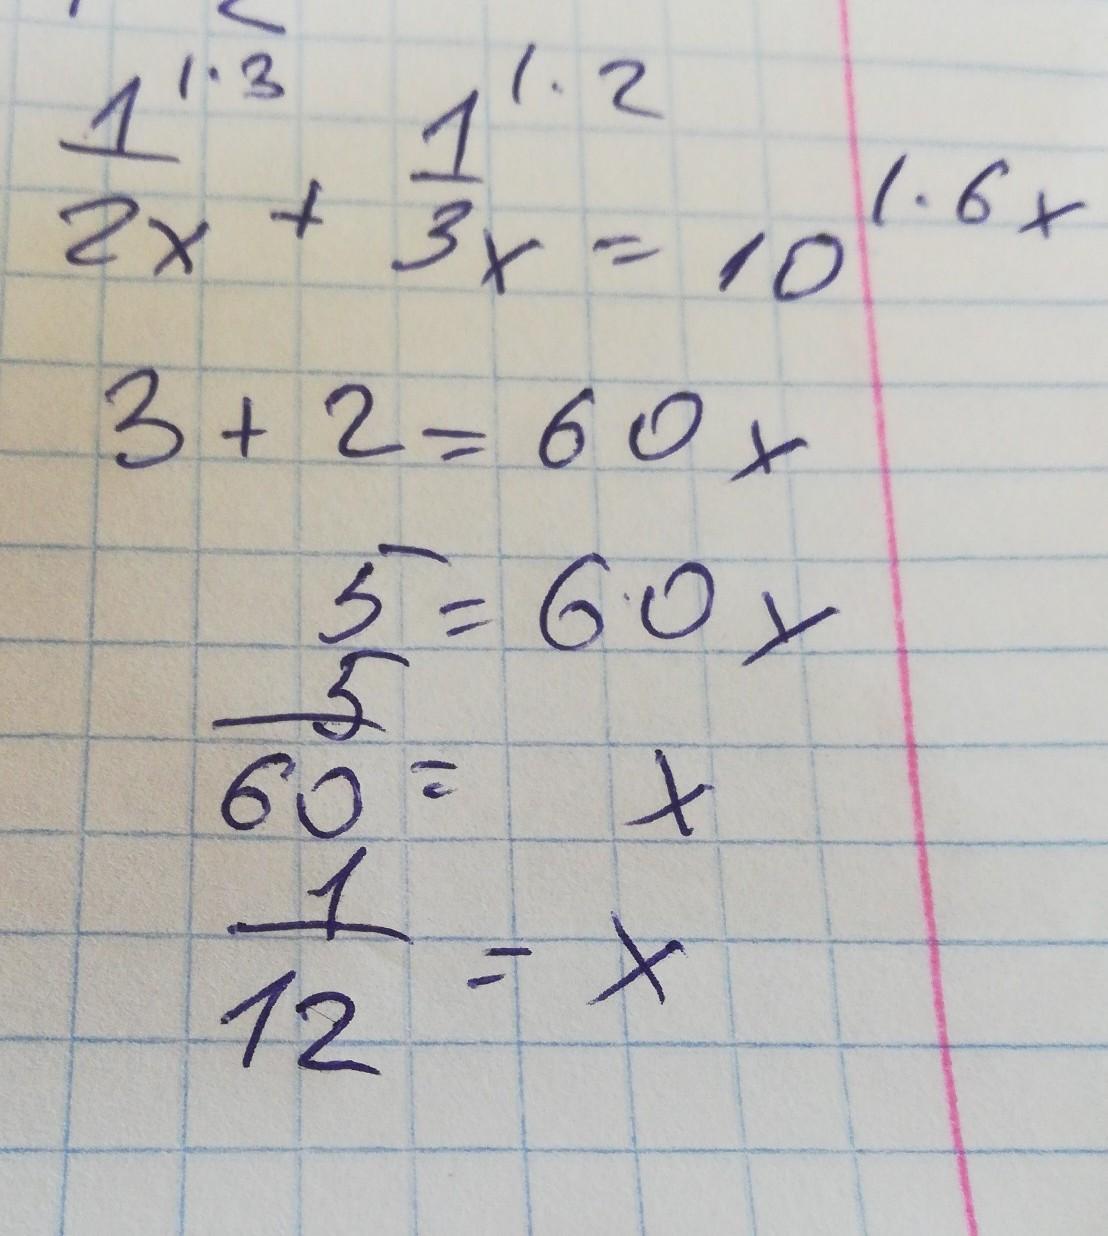 1/2x |·3 + 1/3x |·2 = 10 |·6x
3 + 2 = 60x
5 = 60x
5/60 = x
1/12 = x